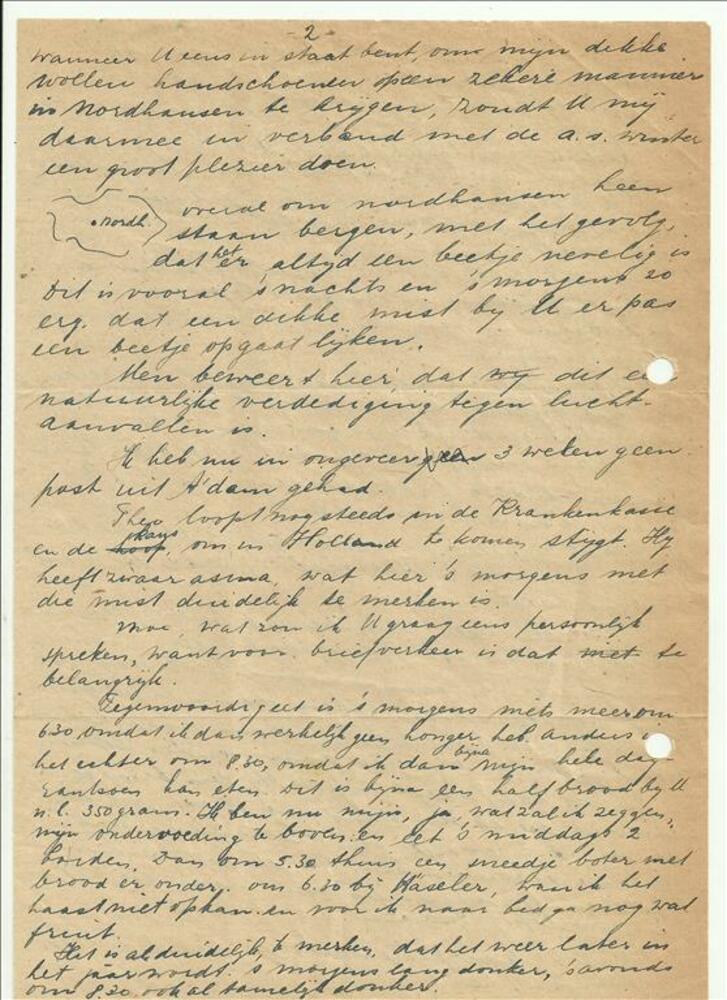 - 2 -
wanneer U eens in staat bent, om mijn dikke
wollen handschoenen op een zekere manier
in Nordhausen te krygen, zoudt U my
daarmee in verband met de a.s. winter
een groot plezier doen.
overal om nordhausen heen
.nordh.
staan bergen, met het gevolg,
dat het er altyd een beetje nevelig is
Dit is vooral 's nachts en 's morgens zo
erg. dat een dikke mist by U er pas
een beetje op gaat lijken.
Men beweert hier, dat wy dit een
natuurlijke verdediging tegen lucht-
aanvallen is.
Ik heb nu in ongeveer geen 3 weken geen
post uit A'dam gehad.
Theo loopt nog steeds in de Krankenkasse
en de hoop kans, om in Holland te komen stygt. Hy
heeft zwaar asma, wat hier 's morgens met
die mist duidelijk te merken is.
Moe, wat zou ik U graag eens persoonlijk
spreken, want voor briefverkeer is dat niet te
belangrijk.
Tegenwoordig eet is 's morgens niets meer om
6.30 omdat ik dan werkelijk geen honger heb. Anders is
het echter om 8.30, omdat ik dan bijna mijn hele dag-
rantsoen kan eten. Dit is bijna een half brood by U
n.l. 350 gram. Ik ben nu mijn, ja, wat zal ik zeggen,
mijn ondervoeding te boven. en eet 's middags 2
borden, Dan om 5.30 thuis een sneedje boter met
brood er onder. om 6.30 bij Käseler, waar ik het
haast niet op kan. en voor ik naar bed ga nog wat
fruit.
Het is al duidelijk, te merken, dat het weer later in
het jaar wordt. 's morgens lang donker, 's avonds
om 8.30 ook al tamelijk donker.